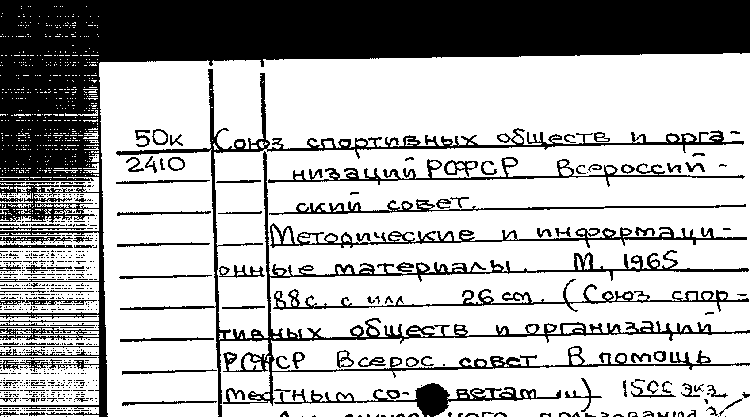 50к Союз спортивных обществ и орга-
2410 низаций РСФСР Всероссий-
ский совет.
Методические и информаци-
онные материалы. М., 1965
88с. с илл. 26 см. (Союз спор-
тивных обществ и организаций
РСФСР Всерос. совет В помощь
местным со-ветам ...) 1500 экз.